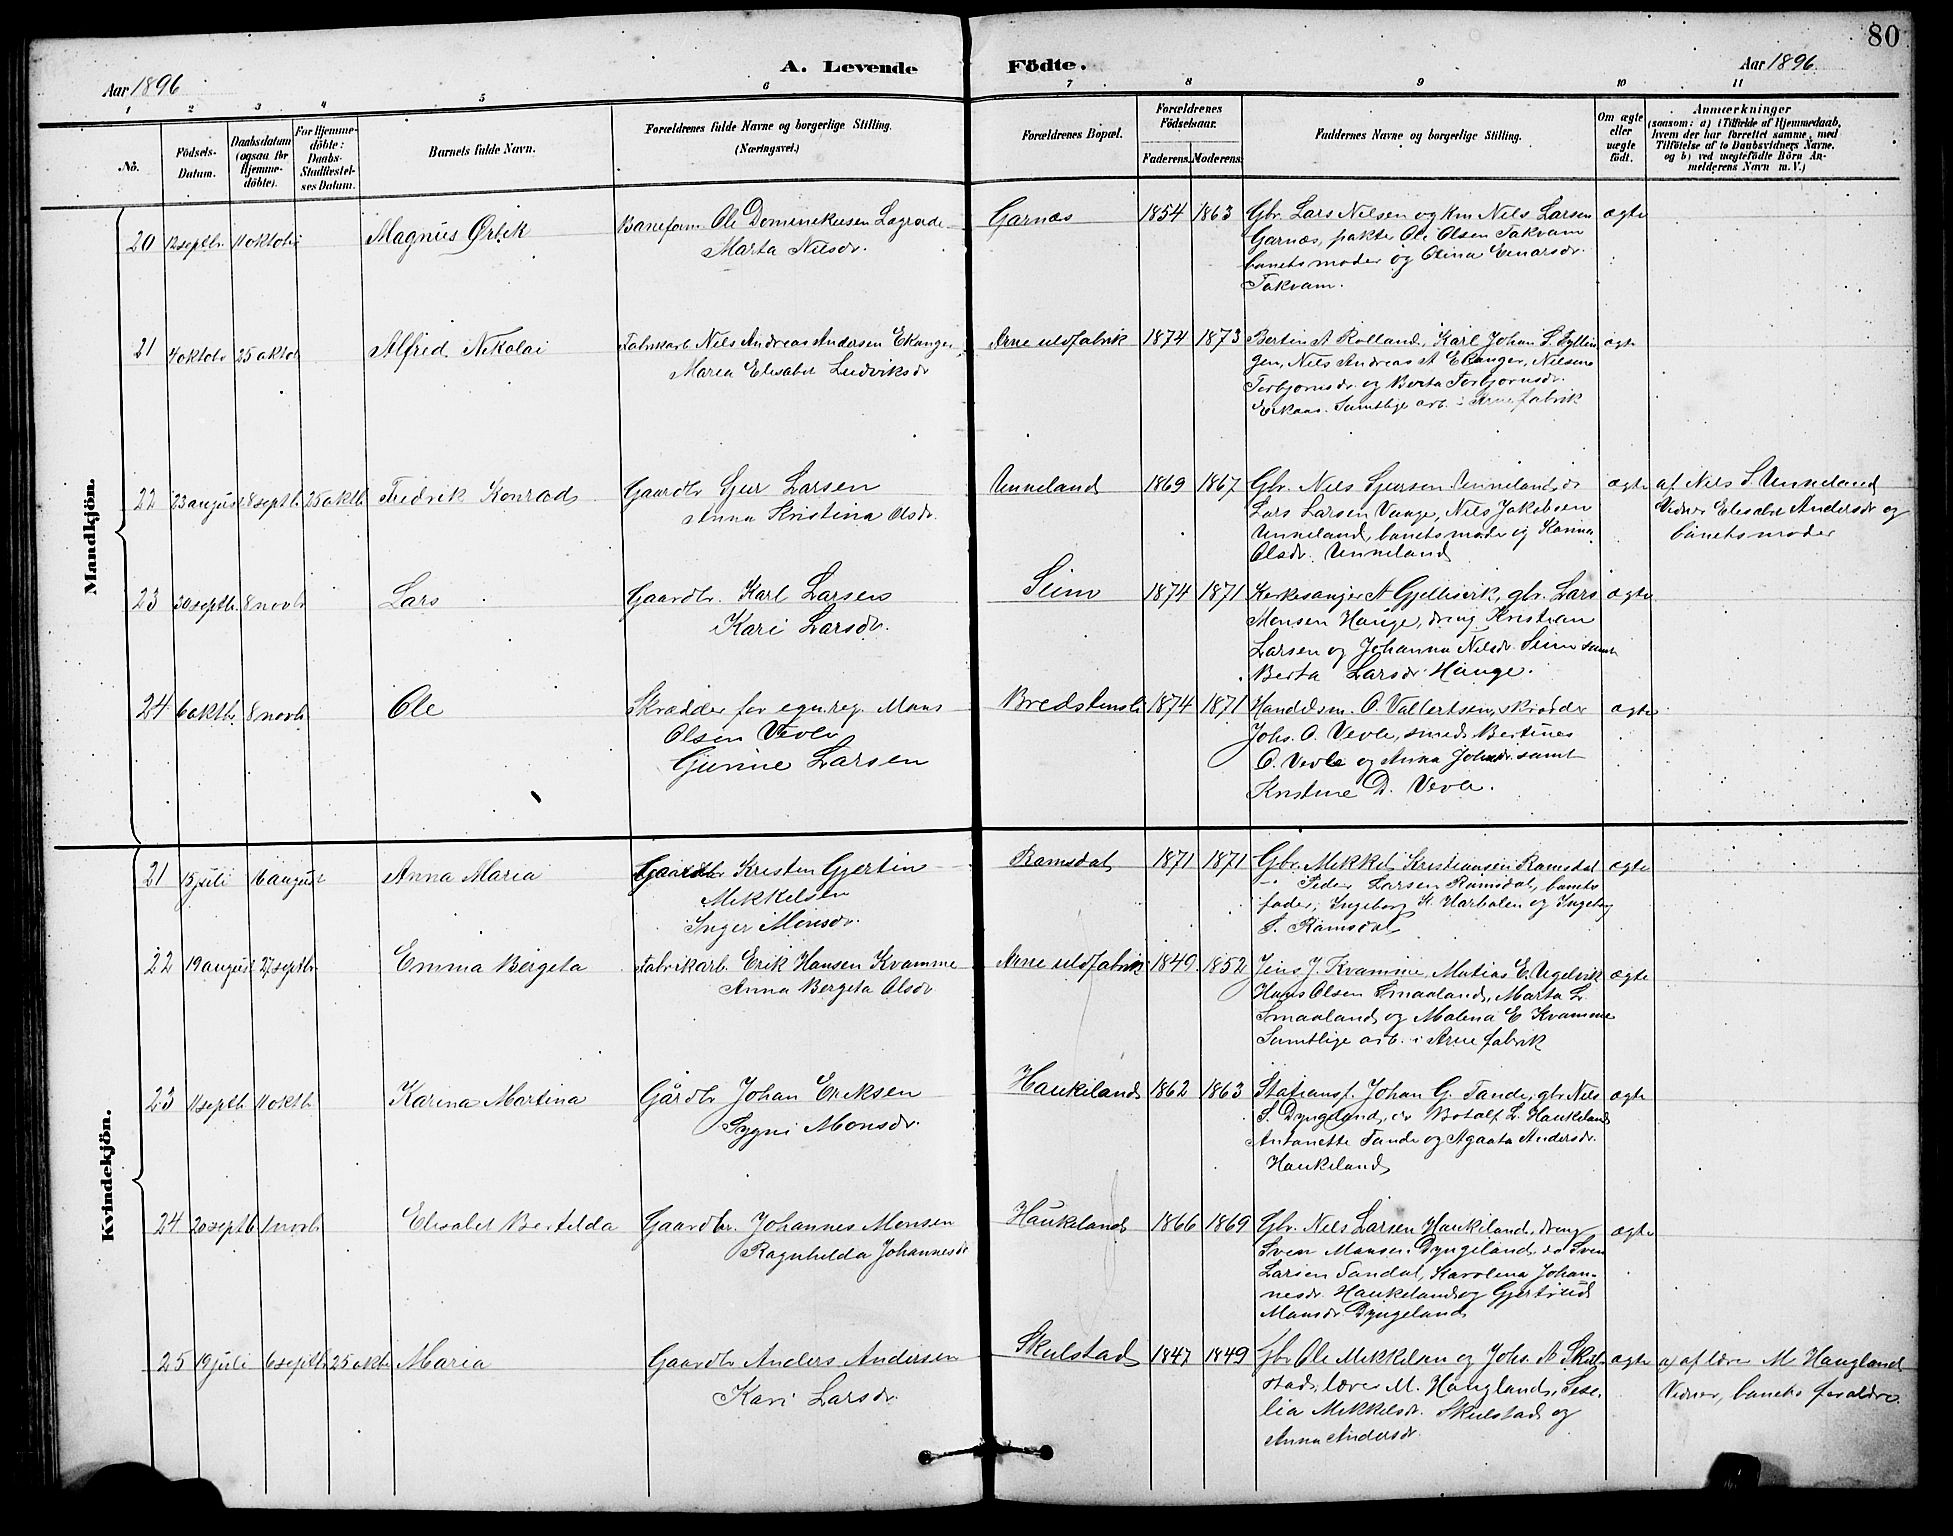 80
Aar 1896
A. Levende
Födte.
Aar 1896
1 2 3 4 5 6 7 8 9 10 11
No.
Födsels-Datum.
Daabsdatum (ogsaa for Hjemme-döbte).
For Hjemme-döbte: Daabs-Stadfæstel-ses Datum.
Barnets fulde Navn.
Forældrenes fulde Navne og borgerlige Stilling.
(Næringsvei.)
Forældrenes Bopæl.
Forældrenes Födselsaar.
Faderens. Moderens.
Faddernes Navne og borgerlige Stilling.
Om ægte eller uægte født.
Anmærkninger
(saasom: a) i Tilfælde af Hjemmedaab,
hvem der har forrettet samme, med
Tilföielse af to Daabsvidners Navne.
og b) ved uægtefödte Börn An-
melderens Navn m. V.)
Mandkjön.
20 12 septbr 11 oktobr Magnus Ørbek
Baneform. Ole Domenikusen
Marta Nilsdr.
Garnæs 1854 1863
Gbr. Lars Nilsen og km Nils Larsen
Garnæs, Ole Olsen Takvam
banets moder og Olina Einarsdr.
Takvam.
ægte
21 4 oktobr 25 oktob Alfred Nikolai
Fabrikarb Nils Andreas Andersen Ekanger
Maria Elisabet Ludviksdr
Arne uldfabrik 1874 1873
Bertin A Rolland, Karl Johan S.
gen, Nils Andreas A Ekanger,
Torbjornsdr. og Berta Torbjornsdr.
Samtlige arb. i Arne fabrik
ægte
22 23 august 8 septb 25 oktb. Fredrik Konrad
Gaardbr Sjur Larsen
Anna Kristina Olsdr.
Unneland 1869 1867
Gbr. Nils Sjursen Unneland, do
Lars Larsen Vange, Nils Jakobsen
Unneland, banets moder og Karina
Olsdr. Unneland
ægte
af Nils S. Unneland
Vidner Elisabet Andersdr og
banets moder
23 30 septbr. 8 novb Lars
Gaardbr. Karl Larsen
Kari Larsdr.
Seim 1874 1871
Kirkesanger A Gjellesvik, gbr. Lars
Monsen Hauge, dreng Kristian
Larsen og Johanna Nilsdr. Seim samt
Berta Larsdr Hauge.
ægte
24 6 oktb. 8 novb Ole
Skrædder for egn. reg. Mons
Olsen Vevle
Gurine Larsen
Bredstensli 1874 1871
Handelsm. O. Vallertsen, skrædder
Johs. O. Vevle, smed Bertines
O. Vevle og Anna Johsdr. samt
Kristine D. Vevle.
ægte
Kvindekjön.
21 15 juli 16 august Anna Maria
Gaardbr Kristen Gjertin
Mekkelsen
Inger Monsdr.
Ramsdal 1871 1871
Gbr. Mikkel Kristiansen Ramsdal
Peder Larsen Ramsdal, banets
fader, Ingeborg og Ingeborg
S. Ramsdal
ægte
22 19 august 27 septbr. Emma Bergeta
Fabrikarb. Erik Hansen Kvamme
Anna Bergeta Olsdr
Arne uldfabrik 1849 1852
Jens J. Kvamme, Matias E. Ugelvik
Hans Olsen Smaaland, Marta L.
Smaaland og Malena E Kvamme
Samtlige arb. i Arne fabrik
ægte
23 11 septb 11 oktb. Karina Martina
Gårdbr Johan Eriksen
Sygni Monsdr.
Haukeland 1862 1863
Stationsf. Johan G. Tande, gbr Nils
S. Dyngeland, do Botolf L. Haukeland
Antonette Tande og Agaata Andersdr.
Haukeland
ægte
24 20 septb 1 novb Elisabet Bertilda
Gaardbr. Johannes Monsen
Ragnhilda Johannesdr
Haukeland 1866 1869
Gbr. Nils Larsen Haukeland, dreng
Sven Monsen Dyngeland, do Sven
Larsen Tandal, Karolina Johan-
nesdr. Haukeland og Gjertrud
Monsdr Dyngeland
ægte
25 19 juli 6 septbr 25 oktbr Maria
Gaardbr Anders Andersen
Kari Larsdr.
Skulstad 1847 1849
Gbr Ole Mikkelsen og Johs. A Skul-
stad, lærer M. Haugland, Sise-
lia Mikkelsdr. Skulstad og
Anna Andersdr.
ægte
a) af lærer M Haugland
Vidner, banets forældre.